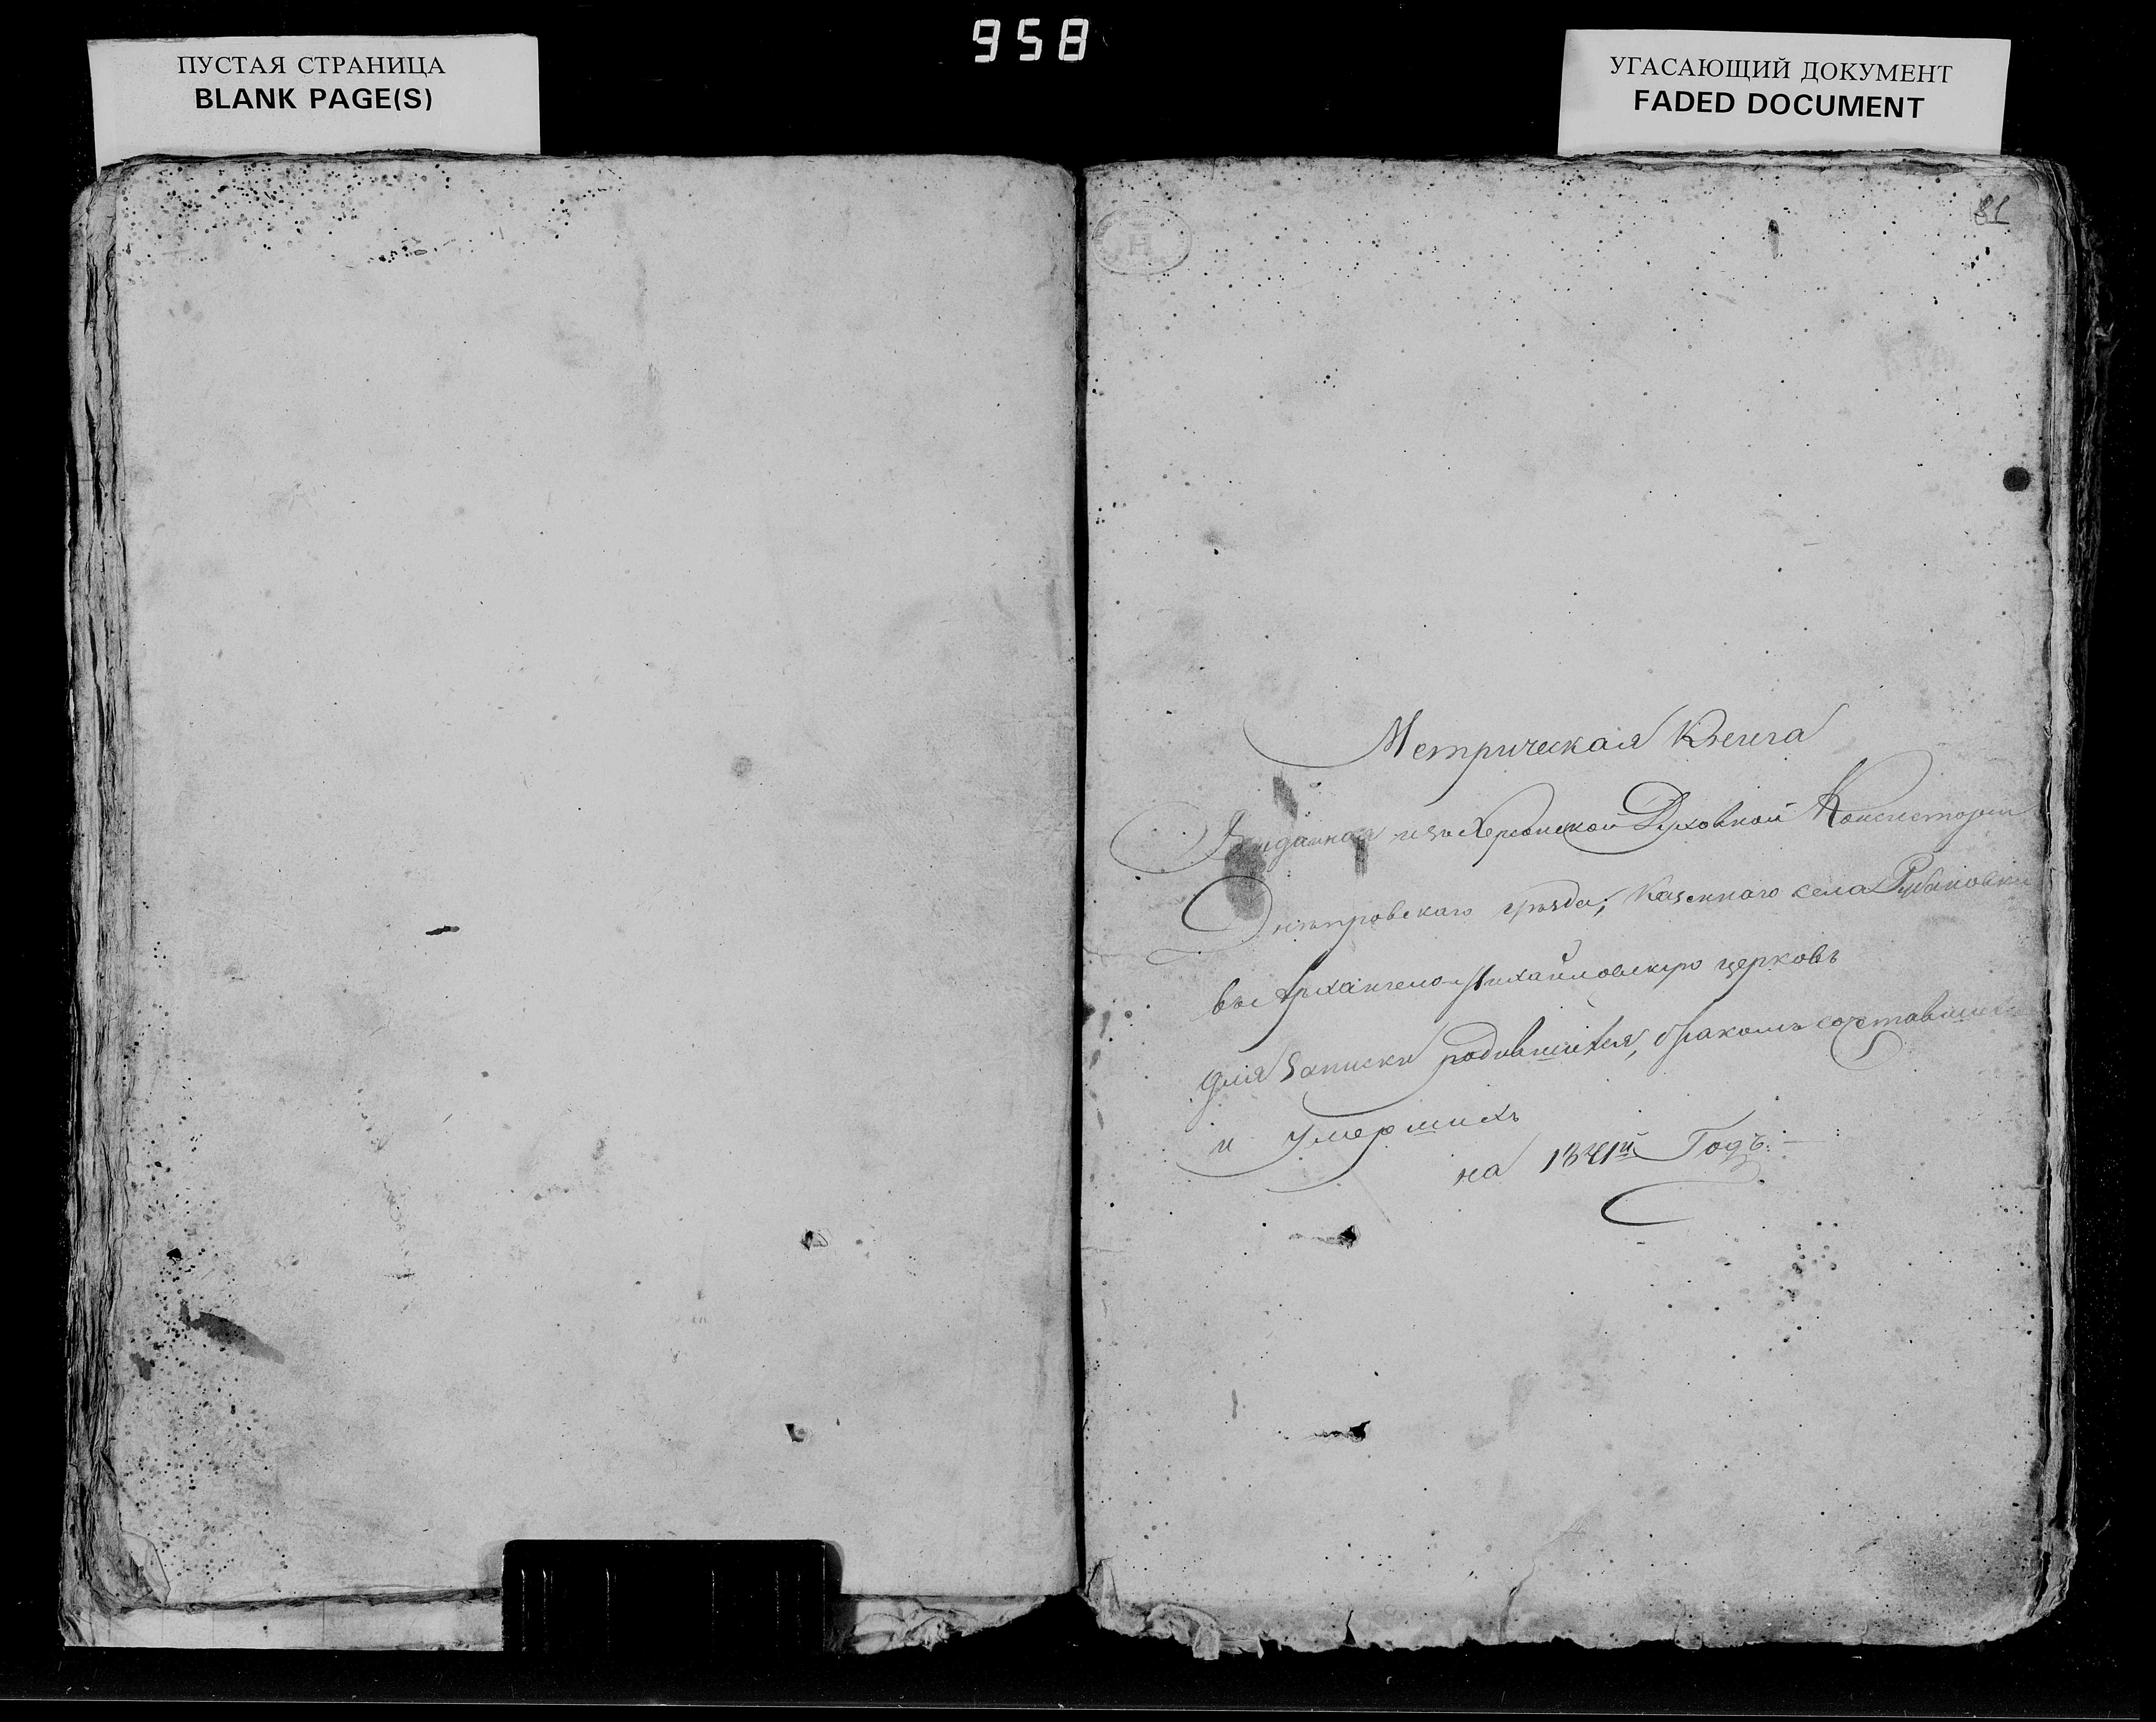 958
ПУСТАЯ СТРАНИЦА
BLANK PAGE(S)
УГАСАЮЩИЙ ДОКУМЕНТ
FADED DOCUMENT
81
Н
Метрическая Книга
Выданная изъ Херсонской Духовной Консистории
Днѣпровскаго уѣзда, Казеннаго села Рубановки
въ Архангело-Михайловскую церковь
для Записки родившихся, бракомъ сочетавшихся
и Умершихъ
на 1841й Годъ.